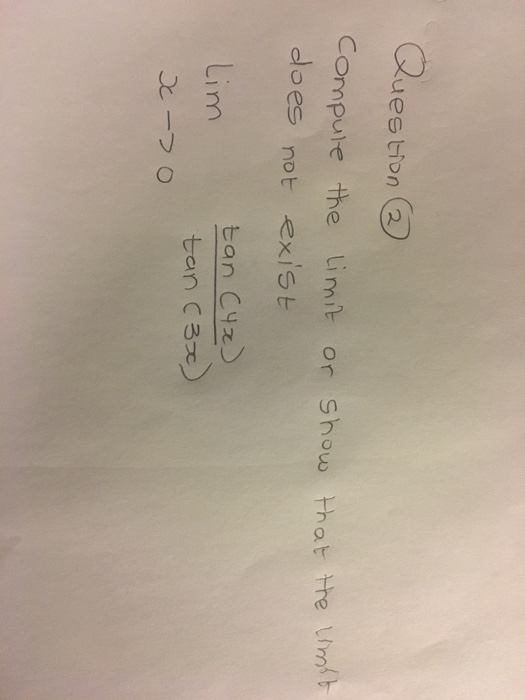 Question (2)
Compute the limit or show that the limit
does not exist
Lim tan (4x)
x -> 0 tan (3x)